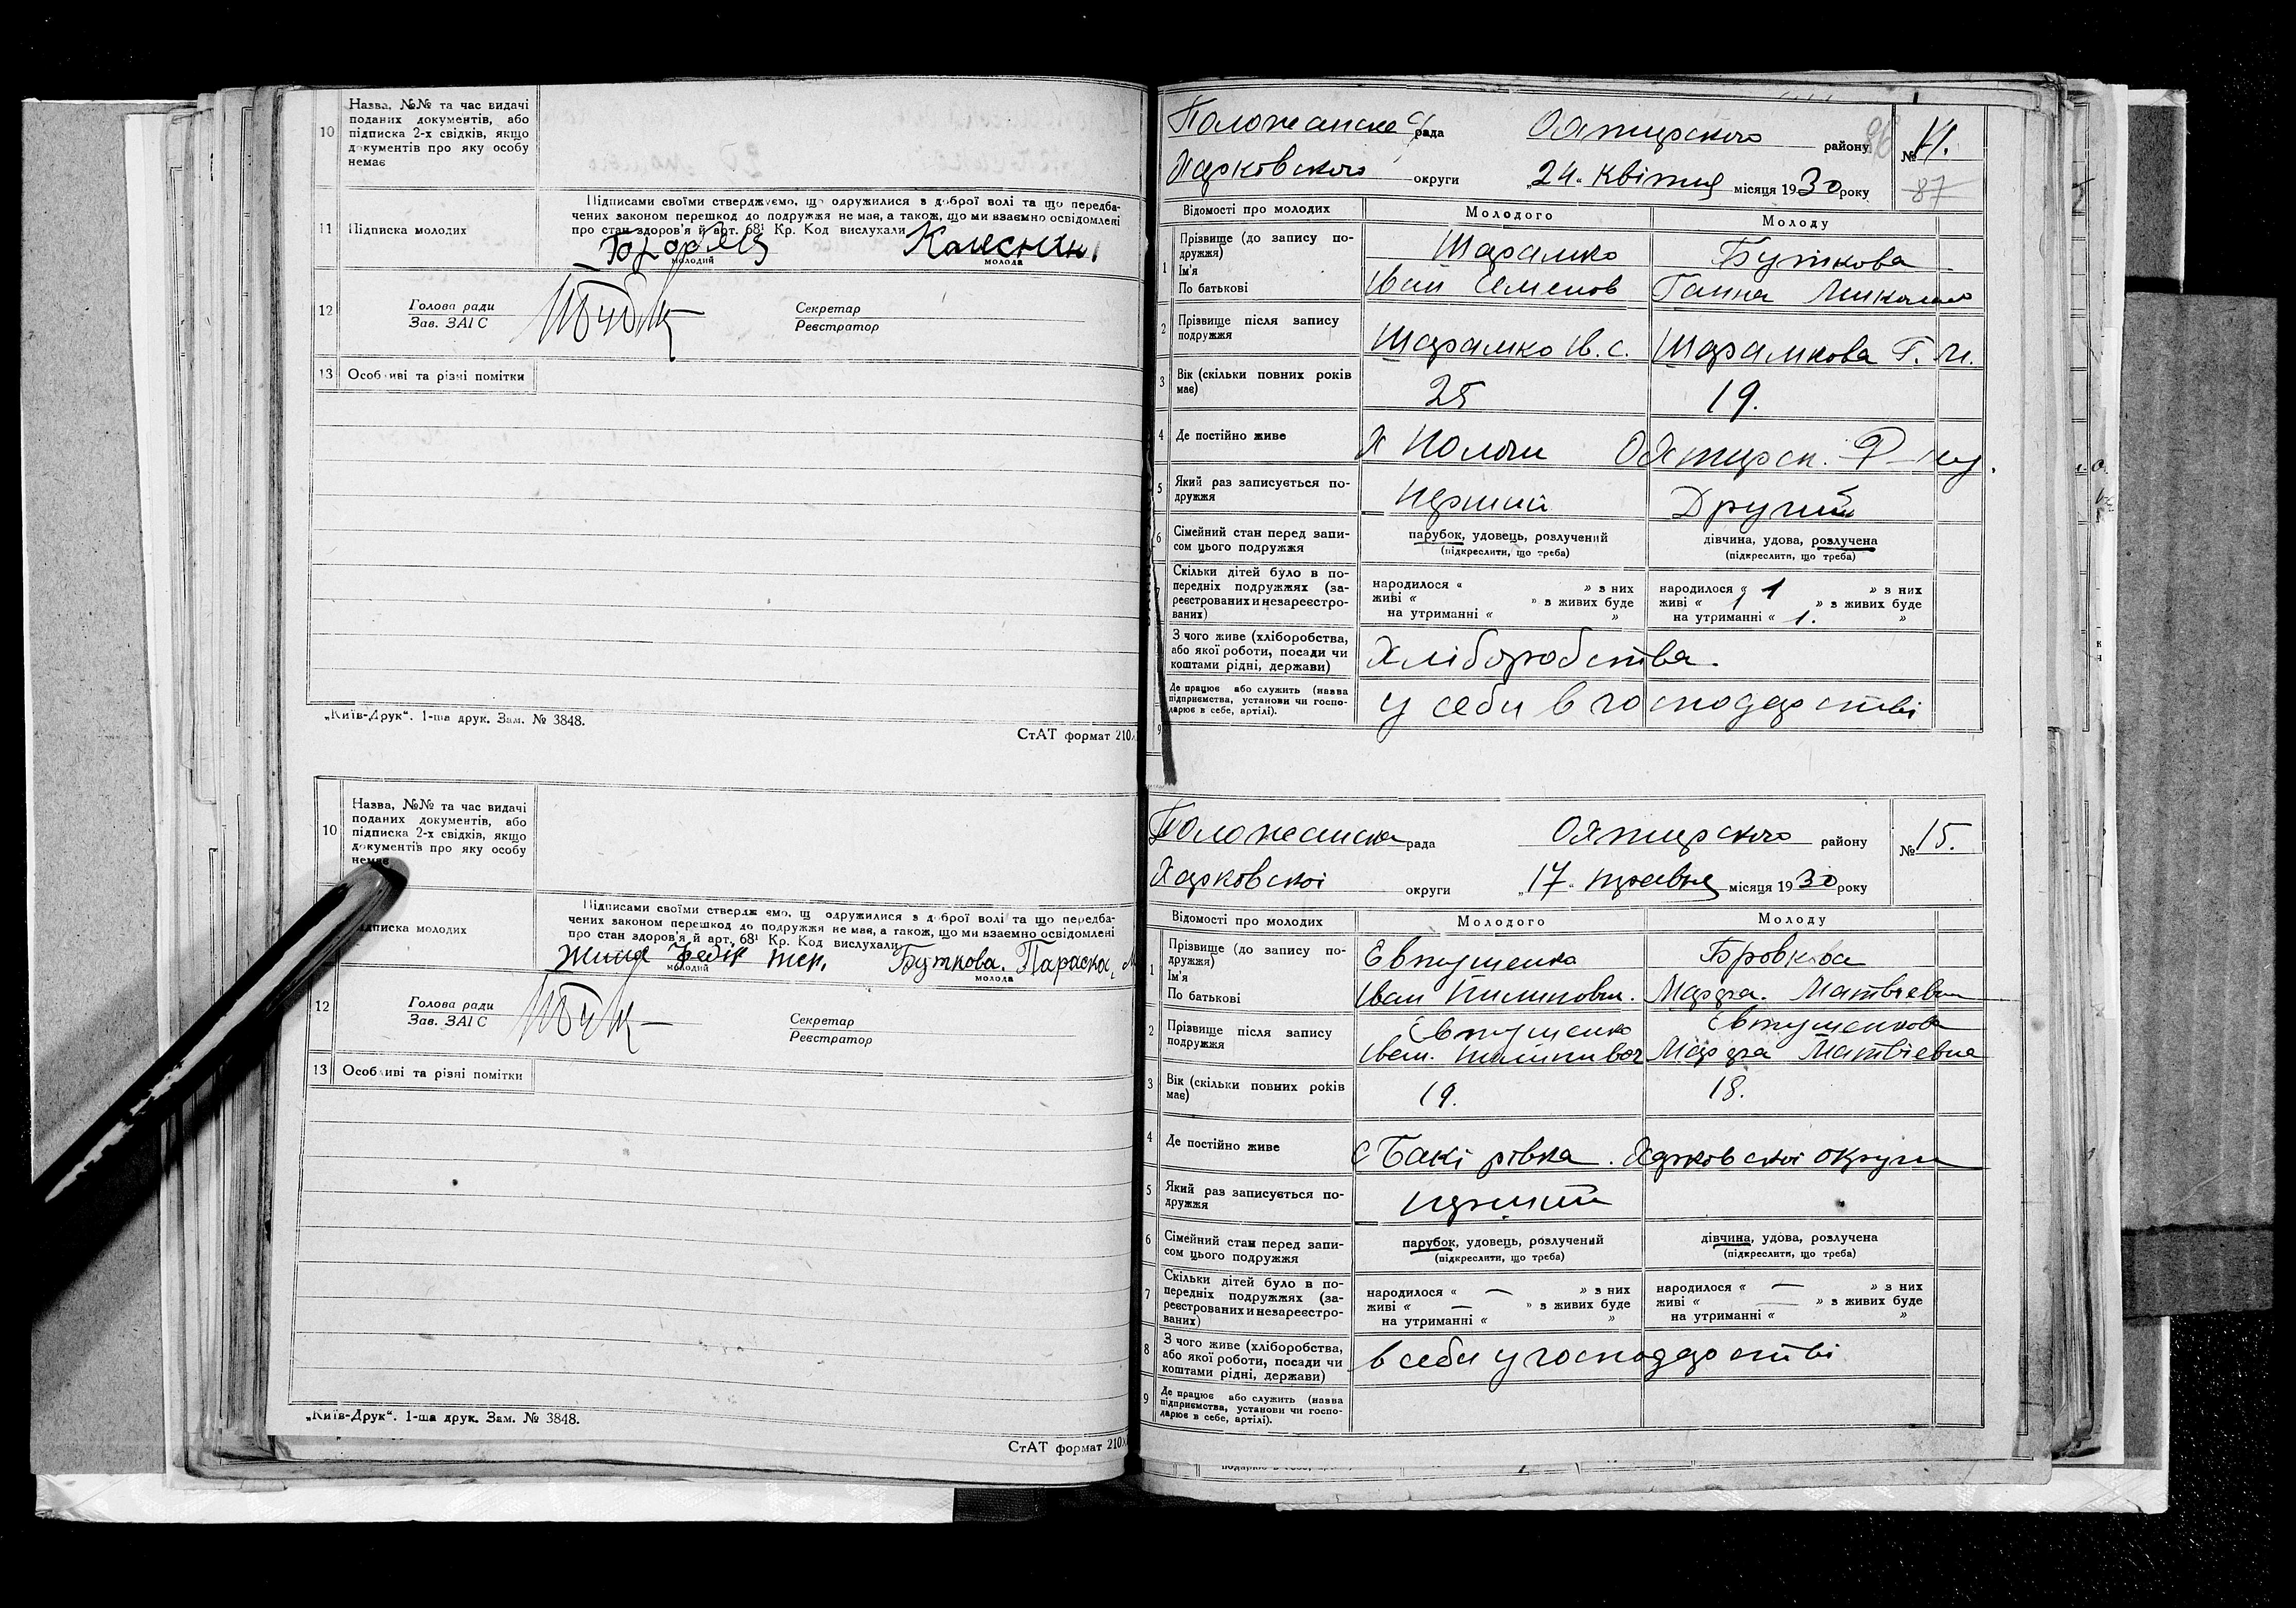 10 Назва, №№ та час видачі
поданих документів, або
підписка 2-х свідків, якщо
документів про яку особу
немає
11 Підписка молодих
Підписами своїми стверджуємо, що одружилися з доброї волі та що передба-
чених законом перешкод до подружжя не має, а також, що ми взаємно освідомлені
про стан здоров'я й арт. 68¹ Кр. Код вислухали
молодий молода
12 Голова ради
Зав. ЗАГС
Секретар
Реєстратор
13 Особливі та різні помітки
„Київ-Друк“. 1-ша друк. Зам. № 3848.
СтАТ формат 210
10 Назва, №№ та час видачі
поданих документів, або
підписка 2-х свідків, якщо
документів про яку особу
немає
підписка молодих
Підписами своїми стверджуємо, що одружилися з доброї волі та що передба-
чених законом перешкод до подружжя не має, а також, що ми взаємно освідомлені
про стан здоров'я й арт. 68¹ Кр. Код вислухали
Буткова. Параска
молодий молода
12 Голова ради
Зав. ЗАГС
Секретар
Реєстратор
13 Особливі та різні помітки
„Київ-Друк“. 1-ша друк. Зам. № 3848.
СтАТ формат 210
рада Охтирского району №
Харковского округи „24“ Квітня місяця 1930 року
87
Відомості про молодих Молодого Молоду
1 Прізвище (до запису по-
дружжя)
Ім'я
По батькові
Шарамко Буткова
Іван Семенов Ганна
2 Прізвище після запису
подружжя
Шарамко И. С. Шарамкова Г. М.
3 Вік (скільки повних років
має)
25 19.
4 Де постійно живе
Х Положи Охтирск. Р-ну.
5 Який раз записується по-
дружжя
перший Другий
6 Сімейний стан перед запи-
сом цього подружжя
парубок, удовець, розлучений дівчина, удова, розлучена
(підкреслити, що треба) (підкреслити, що треба)
Скільки дітей було в по-
передніх подружжях (за-
реєстрованих и незареєстро-
ваних)
народилося « » з них народилося « 1 » з них
живі « » з живих буде живі « 1 » з живих буде
на утриманні « » на утриманні « 1. »
З чого живе (хліборобства,
або якої роботи, посади чи
коштами рідні, держави)
Хліборобства.
Де працює або служить (назва
підприємства, установи чи госпо-
дарює в себе, артілі).
9
у себи в господарстві
рада Охтирского району № 15.
Харковскоі округи „17“ травня місяця 1930 року
Відомості про молодих Молодого Молоду
1 Прізвище (до запису по-
дружжя)
Ім'я
По батькові
Евтушенко Бровкова
Іван Пилипович. Марфа. Матвіевна
2 Прізвище після запису
подружжя
Евтушенко Евтушенкова
Іван. Пилипивоч Марфа Матвіевна
3 Вік (скільки повних років
має)
19. 18.
4 Де постійно живе
С Бакірівка. Харковскоі округи
5 Який раз записується по-
дружжя
перший
6 Сімейний стан перед запи-
сом цього подружжя
парубок, удовець, розлучений дівчина, удова, розлучена
(підкреслити, що треба) (підкреслити, що треба)
7 Скільки дітей було в по-
передніх подружжях (за-
реєстрованих и незареєстро-
ваних)
народилося « — » з них народилося « — » з них
живі « — » з живих буде живі « — » з живих буде
на утриманні « » на утриманні « »
8 З чого живе (хліборобства,
або якої роботи, посади чи
коштами рідні, держави)
в себи у господарстві
9 Де працює або служить (назва
підприємства, установи чи госпо-
дарює в себе, артілі).